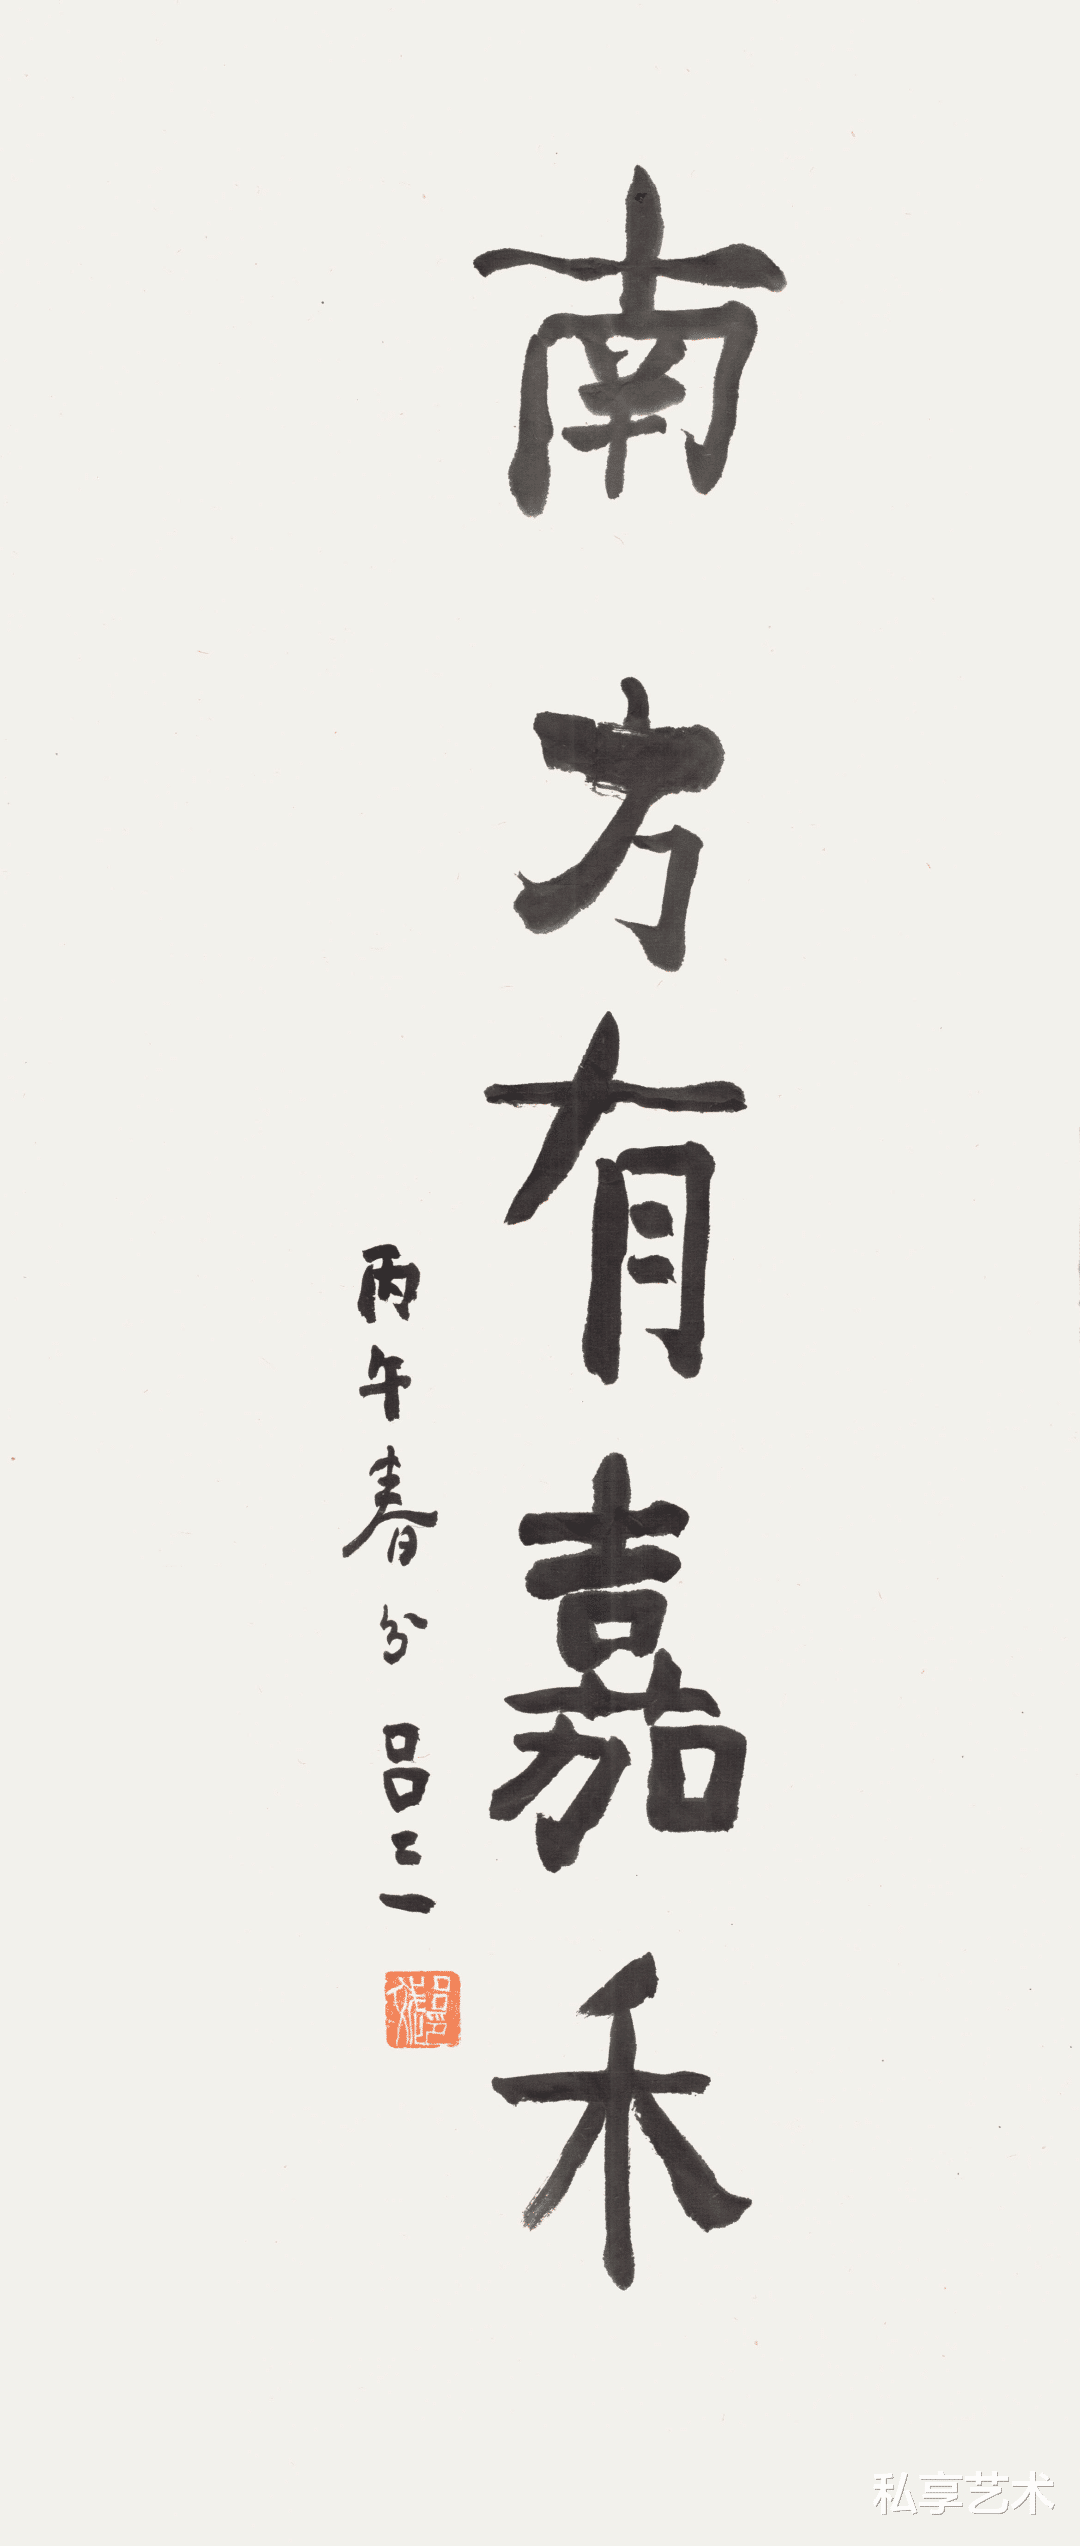 南方有嘉禾
丙午春分 吕二一
私享艺术